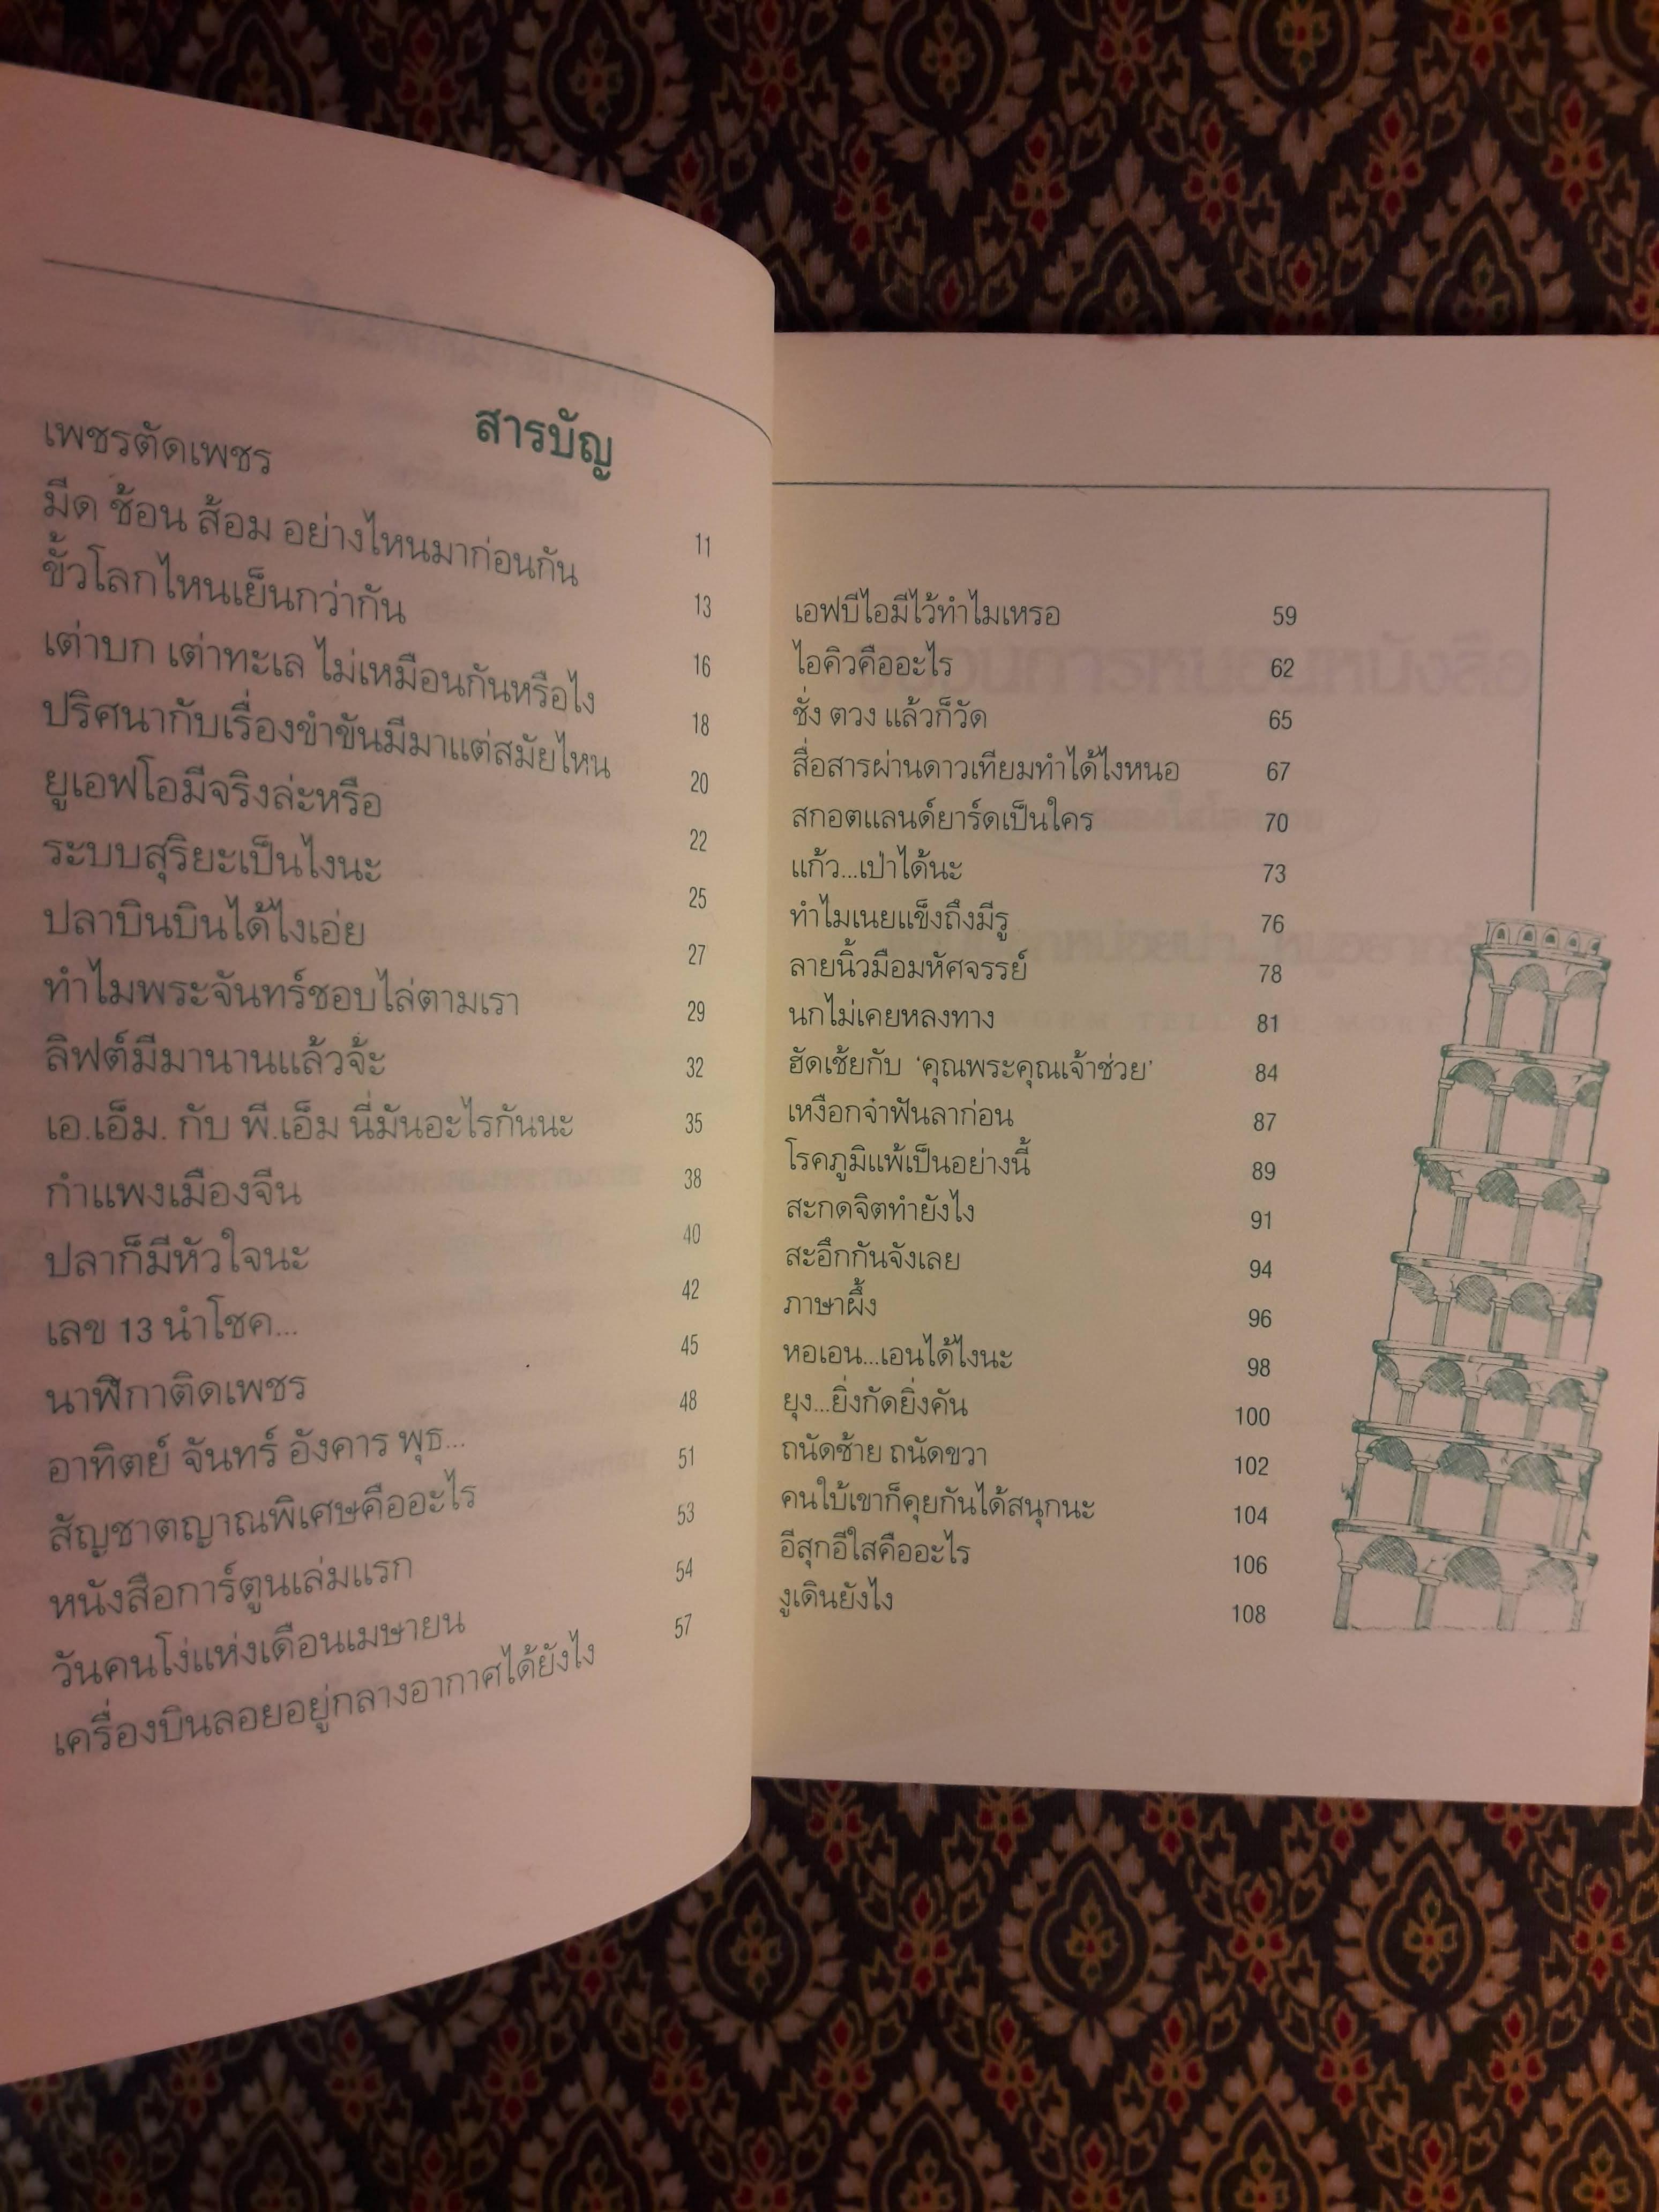 สารบัญ
เพชรตัดเพชร 11
มีด ช้อน ส้อม อย่างไหนมาก่อนกัน 13
ขั้วโลกไหนเย็นกว่ากัน 16
เต่าบก เต่าทะเล ไม่เหมือนกันหรือไง 18
ปริศนากับเรื่องขำขันมีมาแต่สมัยไหน 20
ยูเอฟโอมีจริงล่ะหรือ 22
ระบบสุริยะเป็นไงนะ 25
ปลาบินบินได้ไงเอ่ย 27
ทำไมพระจันทร์ชอบไล่ตามเรา 29
ลิฟต์มีมานานแล้วจ้ะ 32
เอ.เอ็ม. กับ พี.เอ็ม นี่มันอะไรกันนะ 35
กำแพงเมืองจีน 38
ปลาก็มีหัวใจนะ 40
เลข 13 นำโชค... 42
นาฬิกาติดเพชร 45
อาทิตย์ จันทร์ อังคาร พุธ... 48
สัญชาตญาณพิเศษคืออะไร 51
หนังสือการ์ตูนเล่มแรก 53
วันคนโง่แห่งเดือนเมษายน 54
เครื่องบินลอยอยู่กลางอากาศได้ยังไง 57
เอฟบีไอมีไว้ทำไมเหรอ 59
ไอคิวคืออะไร 62
ชั่ง ตวง แล้วก็วัด 65
สื่อสารผ่านดาวเทียมทำได้ไงหนอ 67
สกอตแลนด์ยาร์ดเป็นใคร 70
แก้ว...เป่าได้นะ 73
ทำไมเนยแข็งถึงมีรู 76
ลายนิ้วมือมหัศจรรย์ 78
นกไม่เคยหลงทาง 81
ฮัดเช้ยกับ ‘คุณพระคุณเจ้าช่วย’ 84
เหงือกจ๋าฟันลาก่อน 87
โรคภูมิแพ้เป็นอย่างนี้ 89
สะกดจิตทำยังไง 91
สะอึกกันจังเลย 94
ภาษาผึ้ง 96
หอเอน...เอนได้ไงนะ 98
ยุง...ยิ่งกัดยิ่งคัน 100
ถนัดซ้าย ถนัดขวา 102
คนใบ้เขาก็คุยกันได้สนุกนะ 104
อีสุกอีใสคืออะไร 106
งูเดินยังไง 108